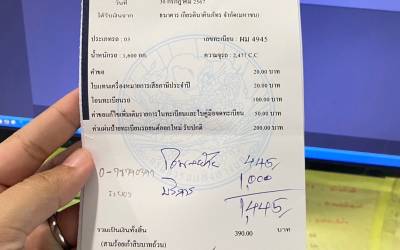 วันที่ 30 กรกฎาคม 2567
ได้รับเงินจาก ธนาคาร เกียรตินาคินภัทร จำกัด(มหาชน)
ประเภทรถ : 03 เลขทะเบียน : ผม 4945
น้ำหนักรถ : 1,600 กก. ความจุรถ : 2,477 C.C
ค่าขอ 20.00 บาท
ใบแทนเครื่องหมายการเสียภาษีประจำปี 20.00 บาท
โอนทะเบียนรถ 100.00 บาท
ค่าขอแก้ไขเพิ่มเติมรายการในทะเบียนและใบคู่มือจดทะเบียน 50.00 บาท
ค่าแผ่นป้ายทะเบียนรถยนต์ออกใหม่ รับปกติ 200.00 บาท
445
บริการ 1,000
1,445
รวมเป็นเงินทั้งสิ้น 390.00 บาท
(สามร้อยเก้าสิบบาทถ้วน)